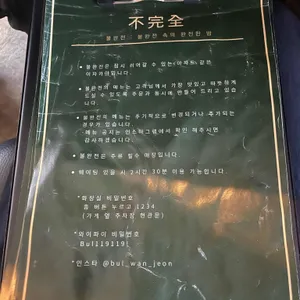 不完全
불완전: 불완전 속의 완전한 쉼
• 불완전은 잠시 쉬어갈 수 있는 아페트 같은
이자카야입니다.
• 불완전의 메뉴는 고객님께서 가장 맛있고 따뜻하게
드실 수 있도록 주문과 동시에 만들어 드리고 있습
니다.
• 불완전의 메뉴는 주기적으로 변경되거나 추가되는
경우가 있습니다.
메뉴 공지는 인스타그램에서 확인 해주시면
감사하겠습니다.
• 불완전은 주류 필수 매장입니다.
• 웨이팅 있을 시 2시간 30분 이용 가능합니다.
*화장실 비밀번호
홈 버튼 누르고 1234
(가게 앞 주차장 현관문)
*와이파이 비밀번호
Bul119119!
*인스타 @bul_wan_jeon